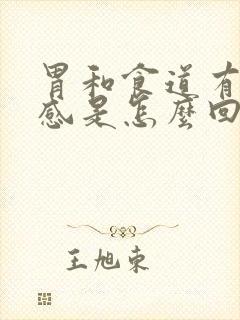 胃和食道有
感是怎麼回
王旭東